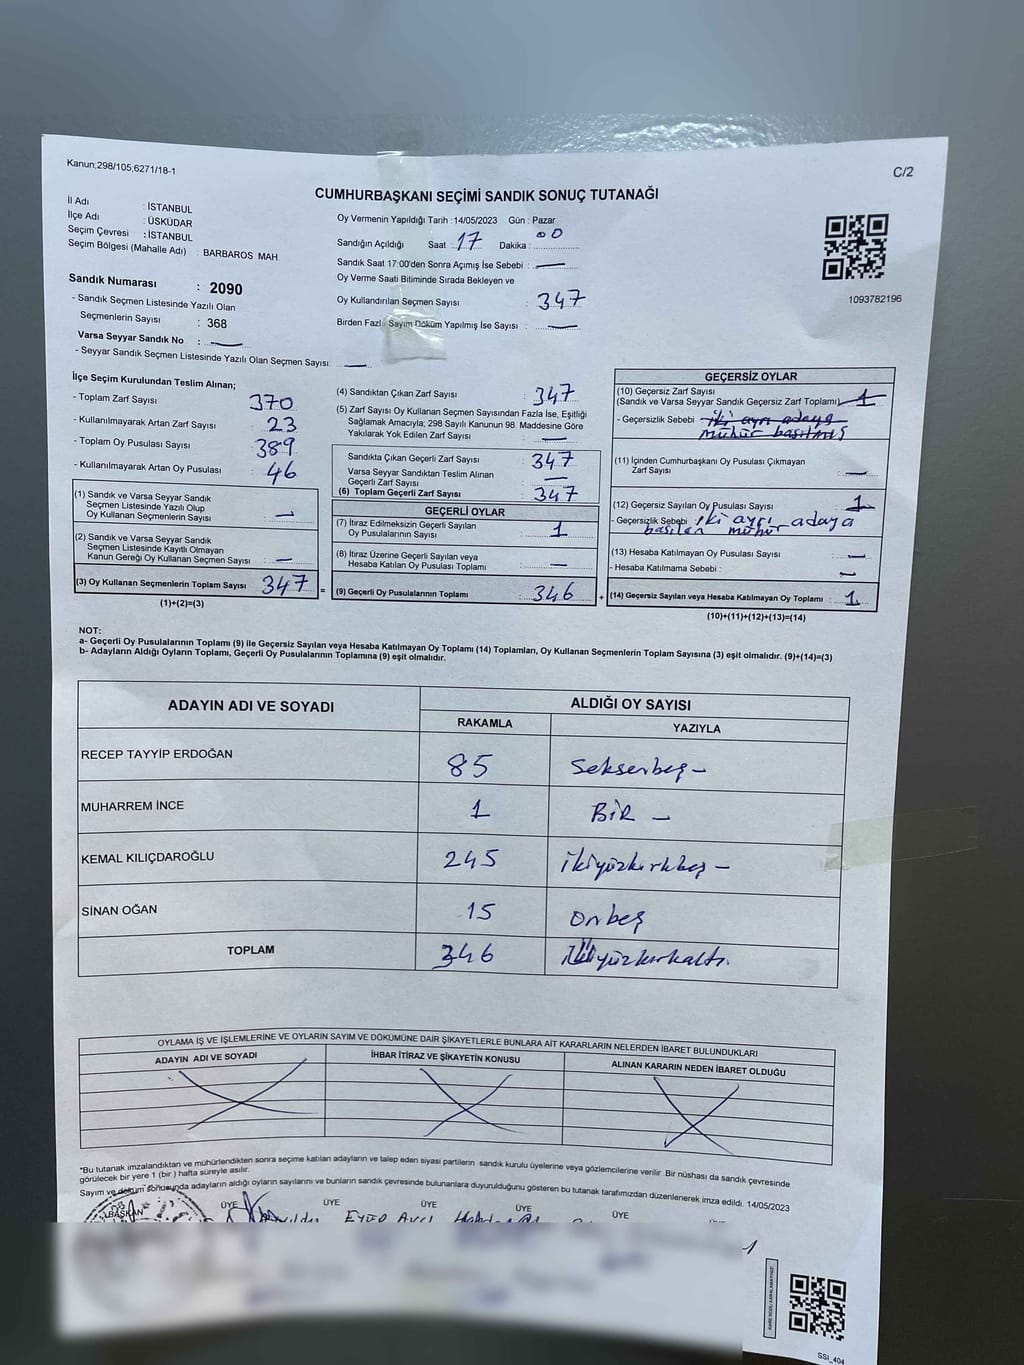 Kanun;298/105;6271/18-1
C/2
CUMHURBAŞKANI SEÇİMİ SANDIK SONUÇ TUTANAĞI
İl Adı : İSTANBUL
İlçe Adı : ÜSKÜDAR
Seçim Çevresi : İSTANBUL
Seçim Bölgesi (Mahalle Adı) : BARBAROS MAH.
Sandık Numarası : 2090
- Sandık Seçmen Listesinde Yazılı Olan
Seçmenlerin Sayısı : 368
Varsa Seyyar Sandık No : —
- Seyyar Sandık Seçmen Listesinde Yazılı Olan Seçmen Sayısı: —
Oy Vermenin Yapıldığı Tarih : 14/05/2023 Gün : Pazar
Sandığın Açıldığı Saat : 17 Dakika : 00
Sandık Saat 17:00'den Sonra Açımış İse Sebebi : —
Oy Verme Saati Bitiminde Sırada Bekleyen ve
Oy Kullandırılan Seçmen Sayısı : 347
Birden Fazla Sayım Döküm Yapılmış İse Sayısı : —
1093782196
İlçe Seçim Kurulundan Teslim Alınan;
- Toplam Zarf Sayısı 370
- Kullanılmayarak Artan Zarf Sayısı 23
- Toplam Oy Pusulası Sayısı 389
- Kullanılmayarak Artan Oy Pusulası 46
(1) Sandık ve Varsa Seyyar Sandık
Seçmen Listesinde Yazılı Olup
Oy Kullanan Seçmenlerin Sayısı : —
(2) Sandık ve Varsa Seyyar Sandık
Seçmen Listesinde Kayıtlı Olmayan
Kanun Gereği Oy Kullanan Seçmen Sayısı : —
(3) Oy Kullanan Seçmenlerin Toplam Sayısı 347 =
(1)+(2)=(3)
(4) Sandıktan Çıkan Zarf Sayısı : 347
(5) Zarf Sayısı Oy Kullanan Seçmen Sayısından Fazla İse, Eşitliği
Sağlamak Amacıyla; 298 Sayılı Kanunun 98. Maddesine Göre
Yakılarak Yok Edilen Zarf Sayısı : —
Sandıkta Çıkan Geçerli Zarf Sayısı : 347
Varsa Seyyar Sandıktan Teslim Alınan
Geçerli Zarf Sayısı : —
(6) Toplam Geçerli Zarf Sayısı : 347
GEÇERLİ OYLAR
(7) İtiraz Edilmeksizin Geçerli Sayılan
Oy Pusulasının Sayısı : 1
(8) İtiraz Üzerine Geçerli Sayılan veya
Hesaba Katılan Oy Pusulası Toplamı : —
(9) Geçerli Oy Pusulalarının Toplamı : 346 +
GEÇERSİZ OYLAR
(10) Geçersiz Zarf Sayısı
(Sandık ve Varsa Seyyar Sandık Geçersiz Zarf Toplamı) 1
- Geçersizlik Sebebi iki ayrı adaya
mühür basılmış
(11) İçinden Cumhurbaşkanı Oy Pusulası Çıkmayan
Zarf Sayısı : —
(12) Geçersiz Sayılan Oy Pusulası Sayısı : 1
- Geçersizlik Sebebi : iki ayrı adaya
basılan mühür
(13) Hesaba Katılmayan Oy Pusulası Sayısı : —
- Hesaba Katılmama Sebebi : —
(14) Geçersiz Sayılan veya Hesaba Katılmayan Oy Toplamı : 1
(10)+(11)+(12)+(13)=(14)
NOT:
a- Geçerli Oy Pusulalarının Toplamı (9) ile Geçersiz Sayılan veya Hesaba Katılmayan Oy Toplamı (14) Toplamları, Oy Kullanan Seçmenlerin Toplam Sayısına (3) eşit olmalıdır. (9)+(14)=(3)
b- Adayların Aldığı Oyların Toplamı, Geçerli Oy Pusulalarının Toplamına (9) eşit olmalıdır.
ADAYIN ADI VE SOYADI
ALDIĞI OY SAYISI
RAKAMLA YAZIYLA
RECEP TAYYİP ERDOĞAN 85 Seksenbeş –
MUHARREM İNCE 1 BİR –
KEMAL KILIÇDAROĞLU 245 ikiyüzkırkbeş –
SİNAN OĞAN 15 onbeş
TOPLAM 346
OYLAMA İŞ VE İŞLEMLERİNE VE OYLARIN SAYIM VE DÖKÜMÜNE DAİR ŞİKAYETLERLE BUNLARA AİT KARARLARIN NELERDEN İBARET BULUNDUKLARI
ADAYIN ADI VE SOYADI İHBAR İTİRAZ VE ŞİKAYETİN KONUSU ALINAN KARARIN NEDEN İBARET OLDUĞU
*Bu tutanak imzalandıktan ve mühürlendikten sonra seçime katılan adayların ve talep eden siyasi partilerin sandık kurulu üyelerine veya gözlemcilerine verilir. Bir nüshası da sandık çevresinde
görülecek bir yere 1 (bir) hafta süreyle asılır.
Sayım ve döküm sonucunda adayların aldığı oyların sayılarını ve bunların sandık çevresinde bulunanlara duyurulduğunu gösteren bu tutanak tarafımızdan düzenlenerek imza edildi. 14/05/2023
BAŞKAN ÜYE ÜYE ÜYE ÜYE ÜYE
SSİ_404